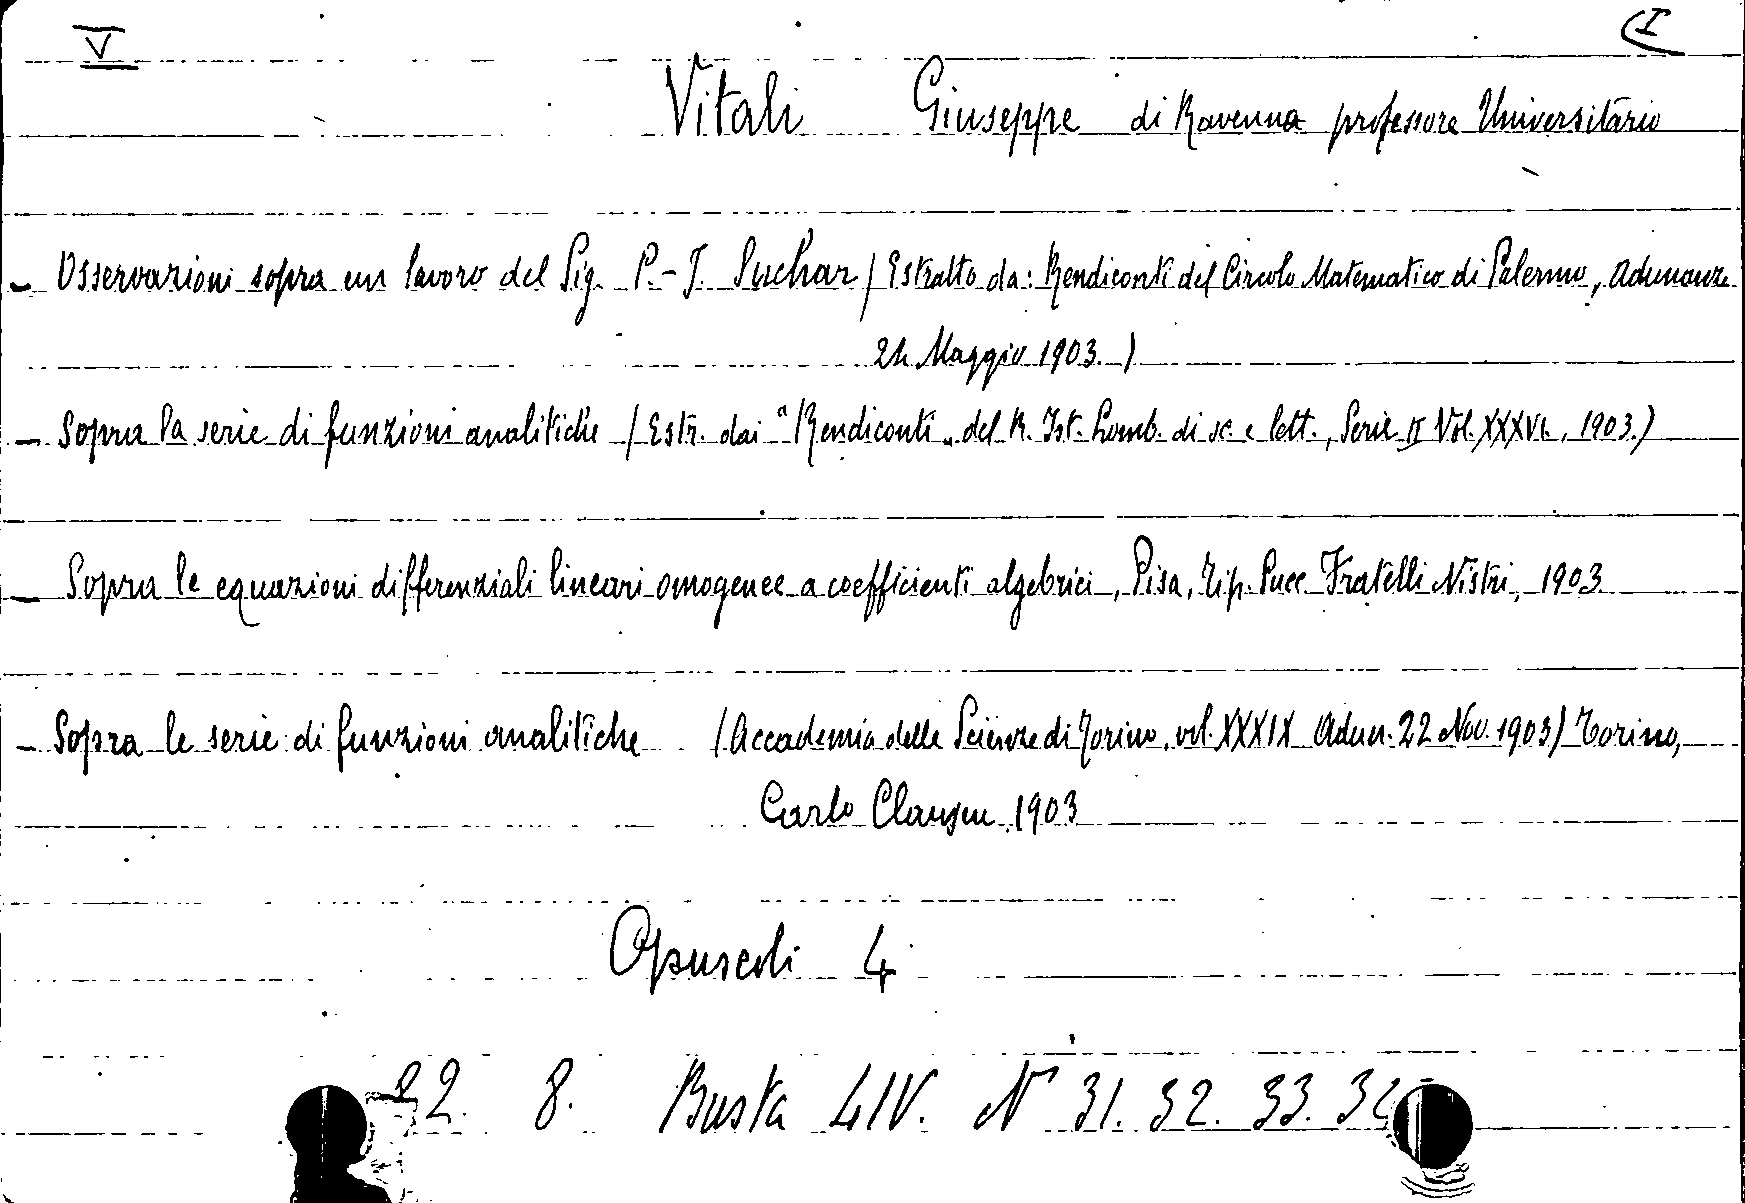 V (I
Vitali Giuseppe di Ravenna professore Universitario
- Osservazioni sopra un lavoro del Sig. P.-J. Suchar (Estratto da: Rendiconti del Circolo Matematico di Palermo, adunanze
24 Maggio 1903.)
- Sopra la serie di funzioni analitiche (Estr. dai "Rendiconti„ del R. Ist. Lomb. di sc. e lett., Serie II Vol. XXXVI., 1903.)
- Sopra le equazioni differenziali lineari omogenee a coefficienti algebrici, Pisa, Tip. Succ. Fratelli Nistri, 1903.
- Sopra le serie di funzioni analitiche (Accademia delle Scienze di Torino, vol. XXXIX Adun. 22 Nov. 1903) Torino,
Carlo Clausen, 1903
Opuscoli 4
22. 8. Busta 4IV. N 31. 32. 33. 34